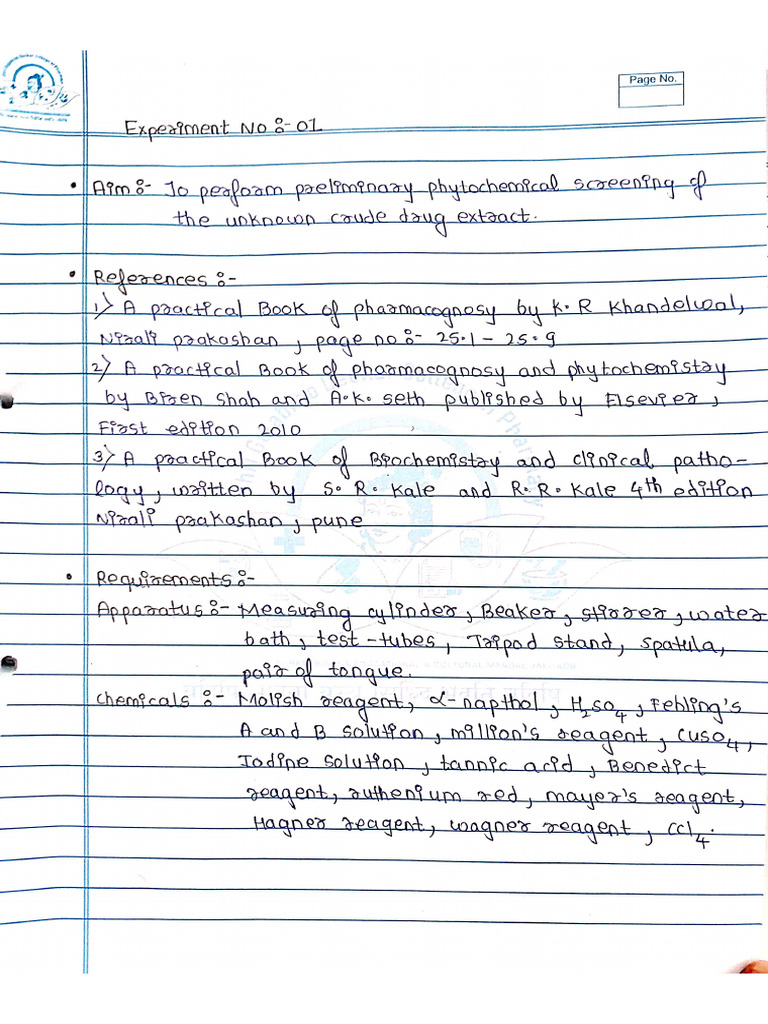 Page No.
Experiment No :- 01
• Aim :- To perform preliminary phytochemical screening of
the unknown crude drug extract.
• References :-
1) A practical Book of pharmacognosy by K. R Khandelwal,
Nirali prakashan, page no :- 25.1 - 25.9
2) A practical Book of pharmacognosy and phytochemistry
by Biren Shah and A.K. seth published by Elsevier,
First edition 2010
3) A practical Book of Biochemistry and clinical patho-
logy, written by S. R. Kale and R. R. Kale 4th edition
Nirali prakashan, pune
• Requirements :-
Apparatus :- Measuring cylinder, Beaker, stirrer, water
bath, test-tubes, Tripod stand, spatula,
pair of tongue.
Chemicals :- Molish reagent, α-napthol, H2SO4, Fehling's
A and B solution, million's reagent, CuSO4,
Iodine solution, tannic acid, Benedict
reagent, ruthenium red, mayer's reagent,
Hagner reagent, wagner reagent, CCl4.